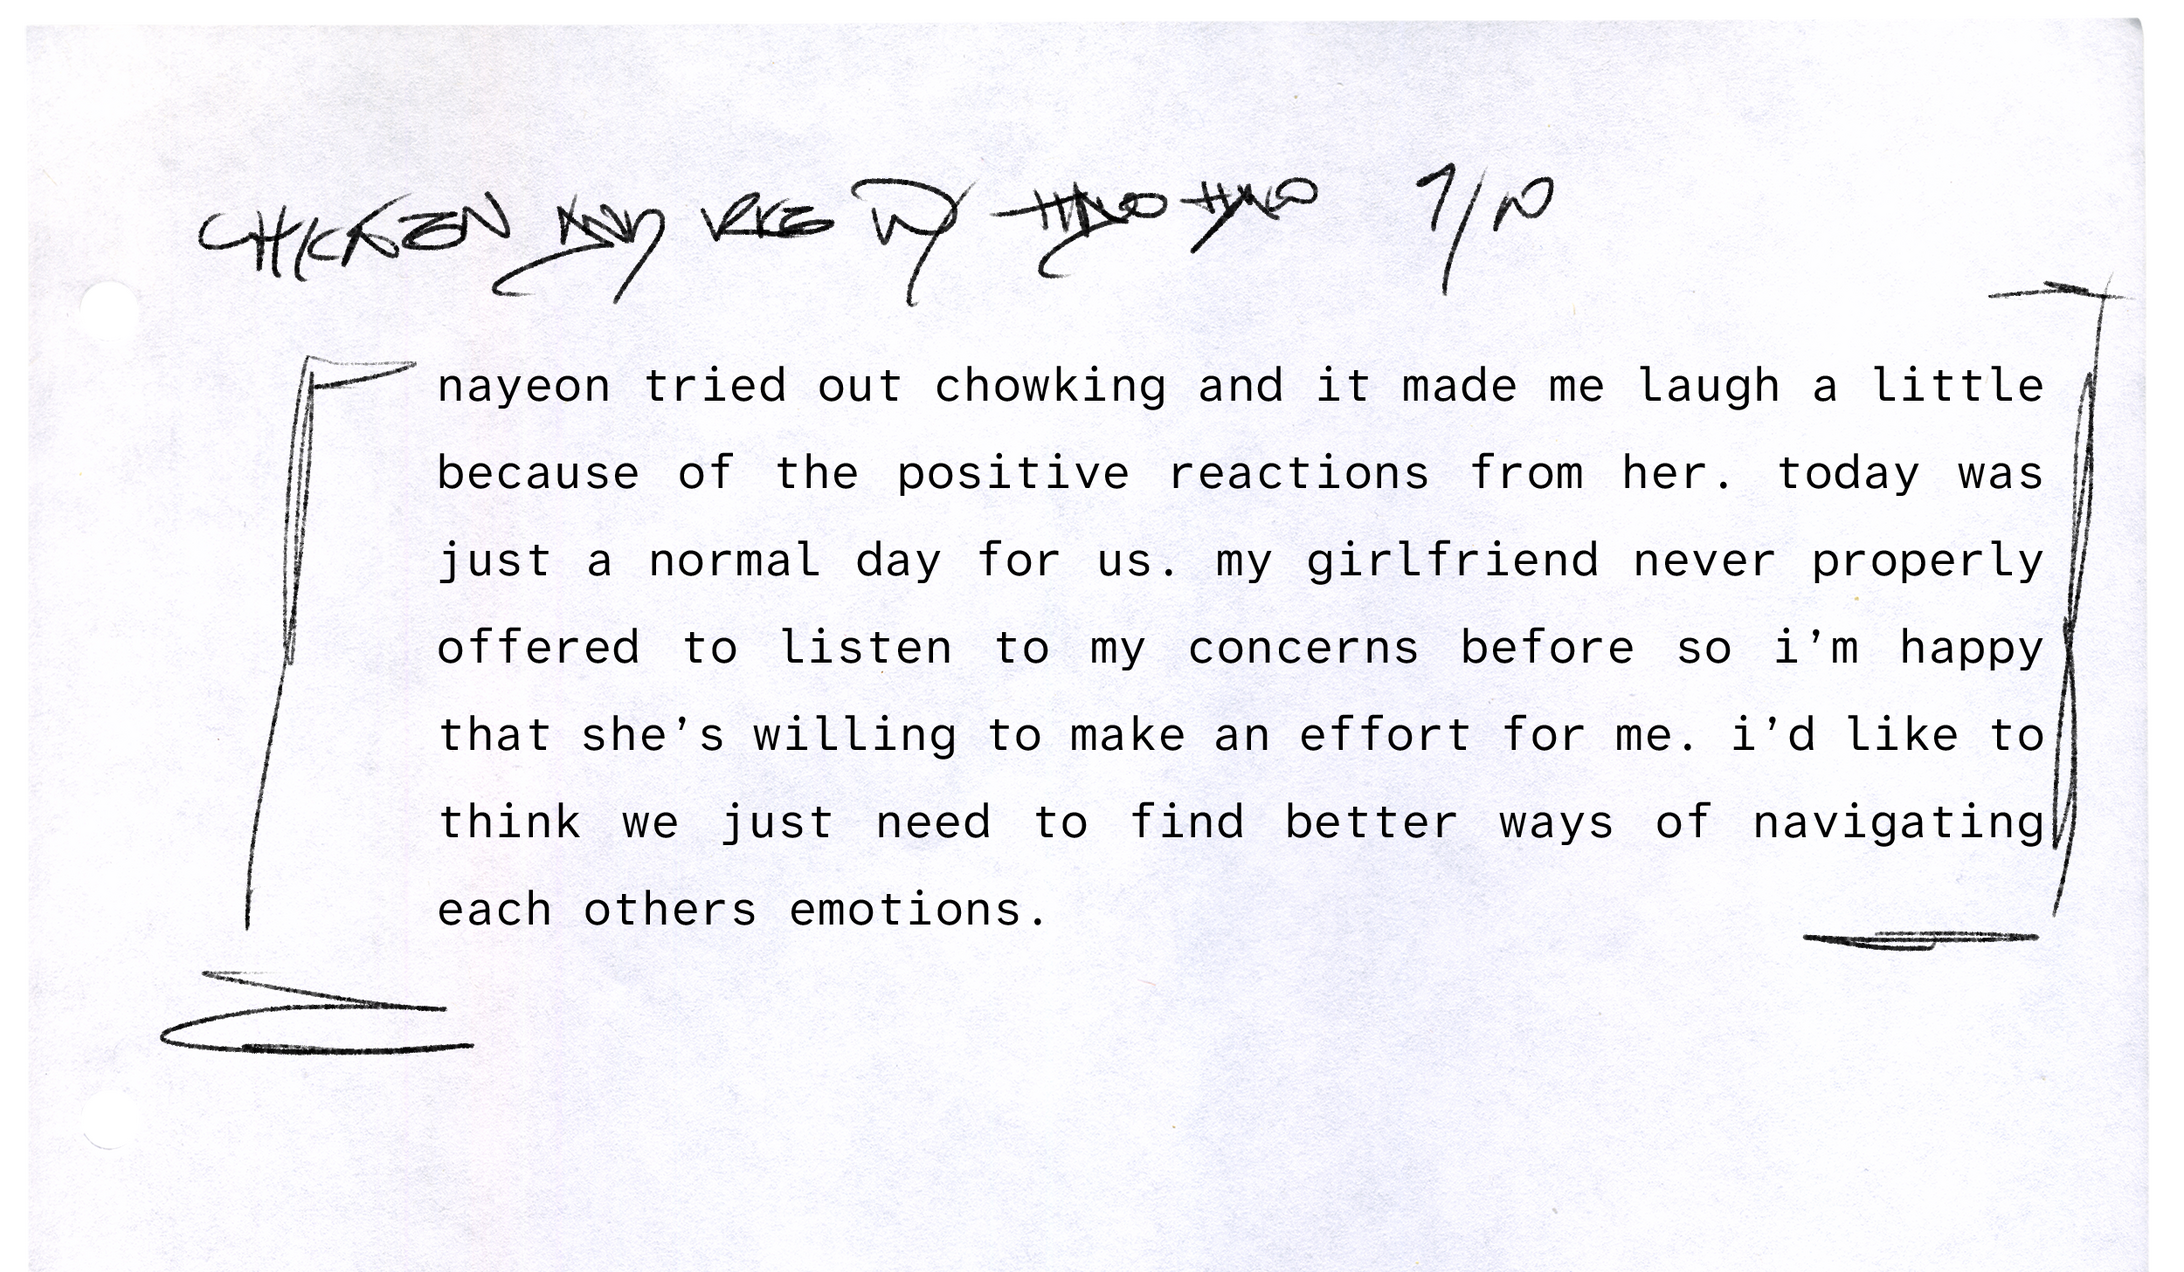 CHICKEN AND RICE W/ HALO HALO 7/10
nayeon tried out chowking and it made me laugh a little
because of the positive reactions from her. today was
just a normal day for us. my girlfriend never properly
offered to listen to my concerns before so i’m happy
that she’s willing to make an effort for me. i’d like to
think we just need to find better ways of navigating
each others emotions.